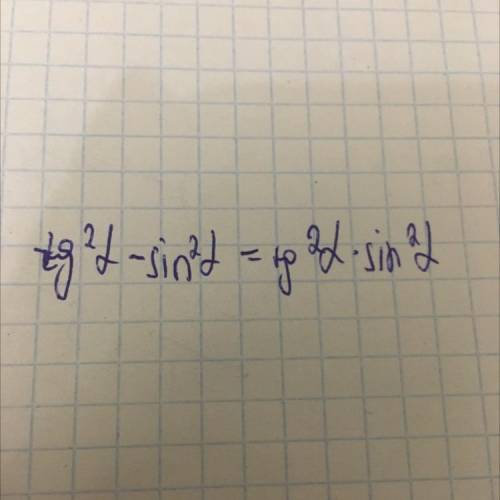 tg²α - sin²α = tg²α · sin²α